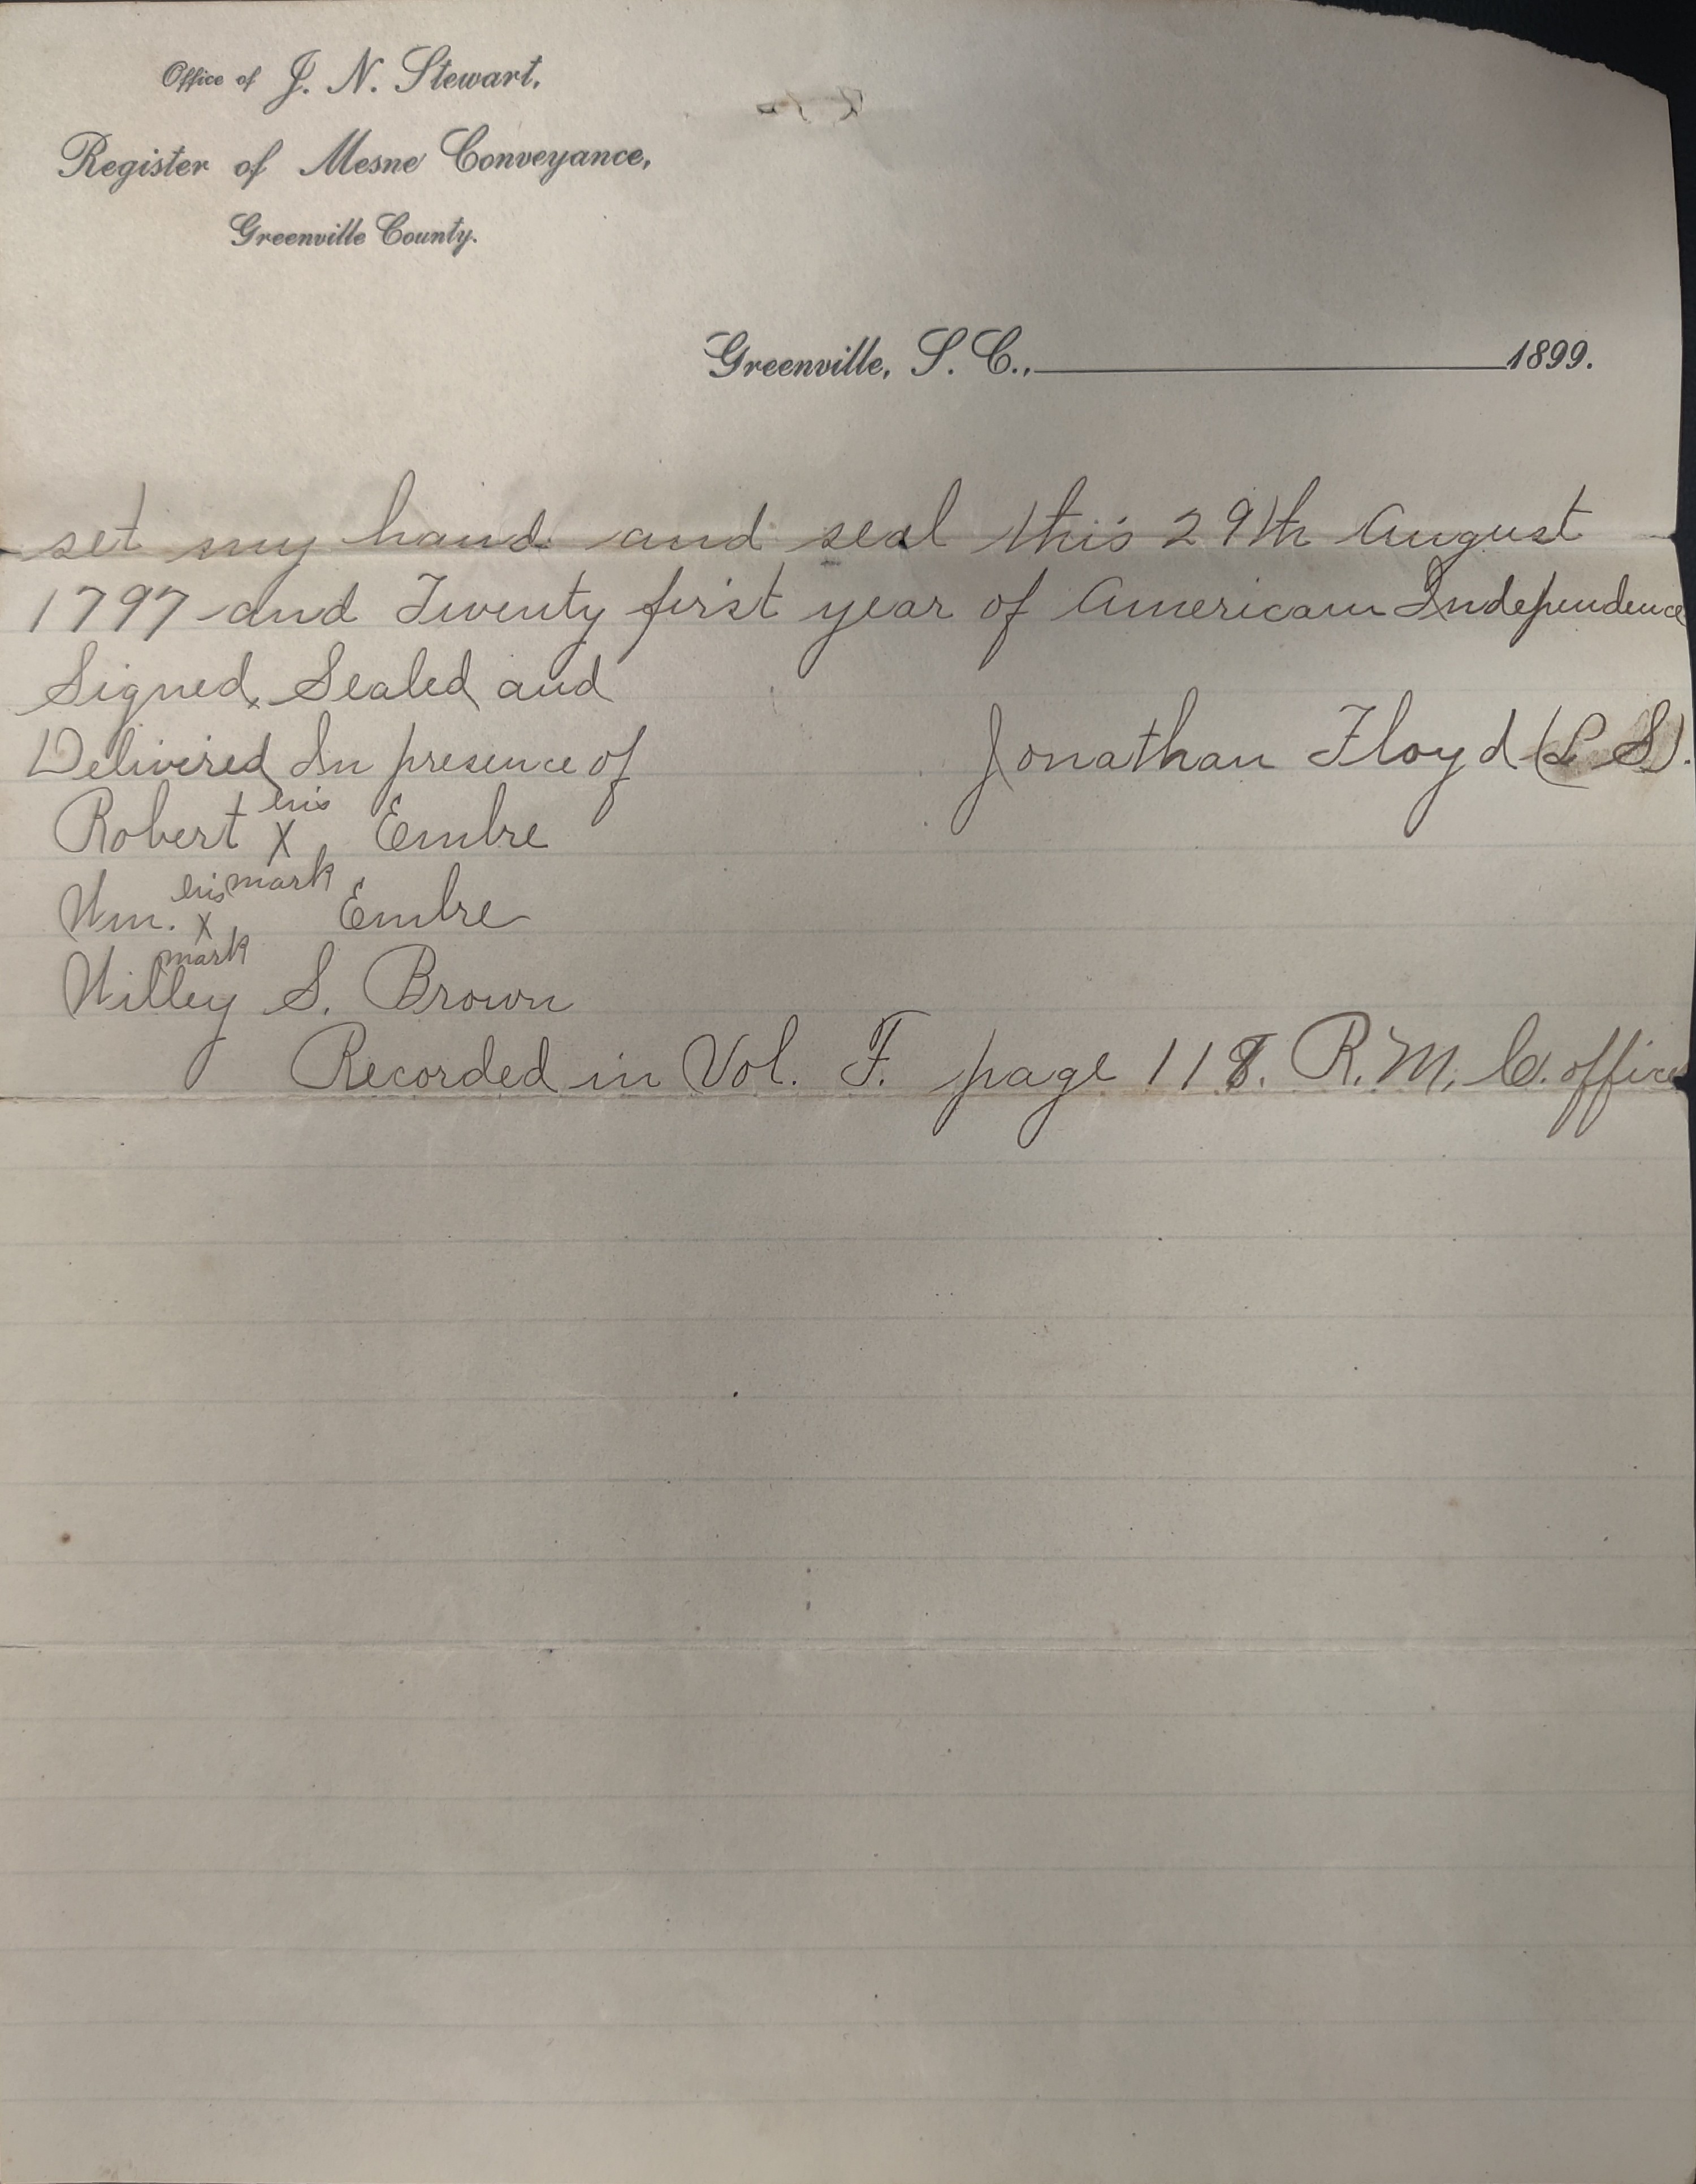 Office of J. N. Stewart,
Register of Mesne Conveyance,
Greenville County.
Greenville, S. C., 1899.
set my hand and seal this 29th August
1797 and Twenty first year of American Independence
Signed, Sealed and
Delivired In presence of Jonathan Floyd (L S).
his
Robert X Embre
his mark
Wm. X Embre
mark
Willey S. Brown
Recorded in Vol. F. page 118. R. M. C. office